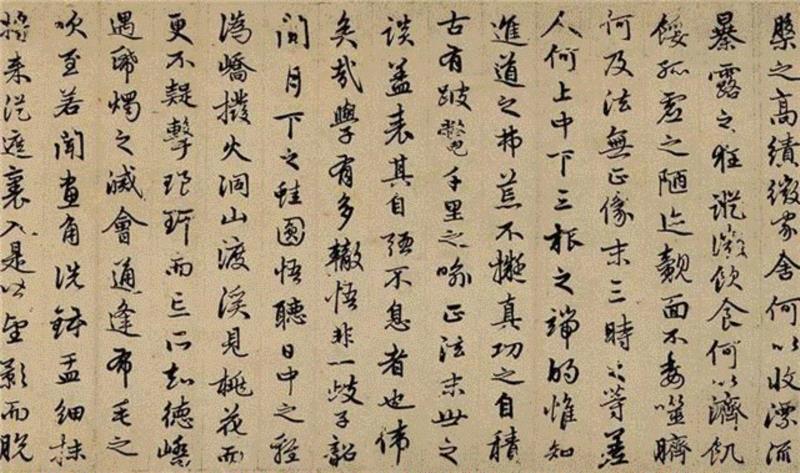 槃之高績微家舍何以收漂流
暴露之狂蹤微飲食何以濟飢
餒孤虛之陋迹覿面不委噬臍
何及法無正像末三時之等差
人何上中下三根之端的惟知
進道之弗荒不擬真功之自積
古有跛鱉千里之喻正法末世之
談蓋表其自强不息者也偉
矣哉學有多轍悟非一歧子韶
聞月下之蛙圜悟聽日中之雞
溈嶠撥火洞山渡溪見桃花而
更不疑擊琅玕而忘所知德嶠
遇紙燭之滅會通逢布毛之
吹至若聞畫角洗鉢盂細抹
將来從遮裏入是皆望影而脫